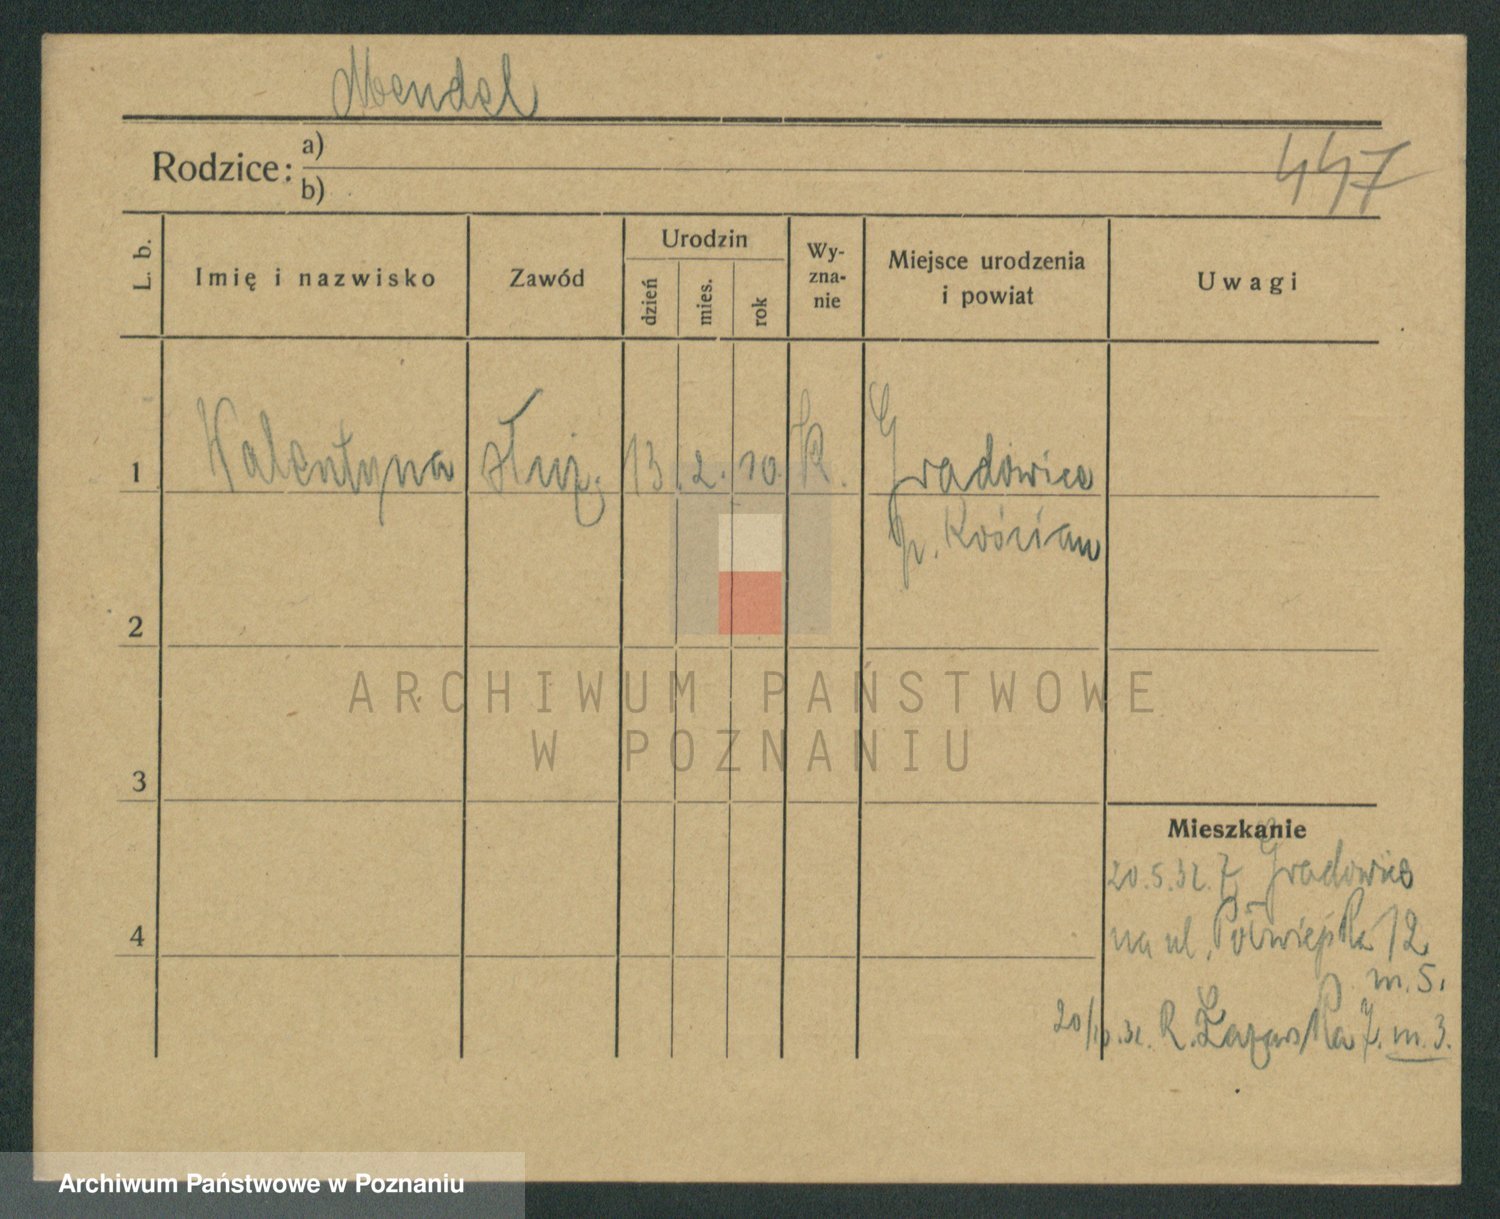 Mendel
Rodzice: a)
b)
447
L. b.
Imię i nazwisko
Zawód
Urodzin
dzień
mies.
rok
Wy-
zna-
nie
Miejsce urodzenia
i powiat
Uwagi
1
Walentyna służ. 13. 2. 10. R. Gradowice
p. Kościan
2
3
4
Mieszkanie
20.5.32. Z Gradowic
na ul. Półwiejska 12
m. 5.
20/10.32. R. Łazarska 7. m. 3.
ARCHIWUM PAŃSTWOWE
W POZNANIU
Archiwum Państwowe w Poznaniu